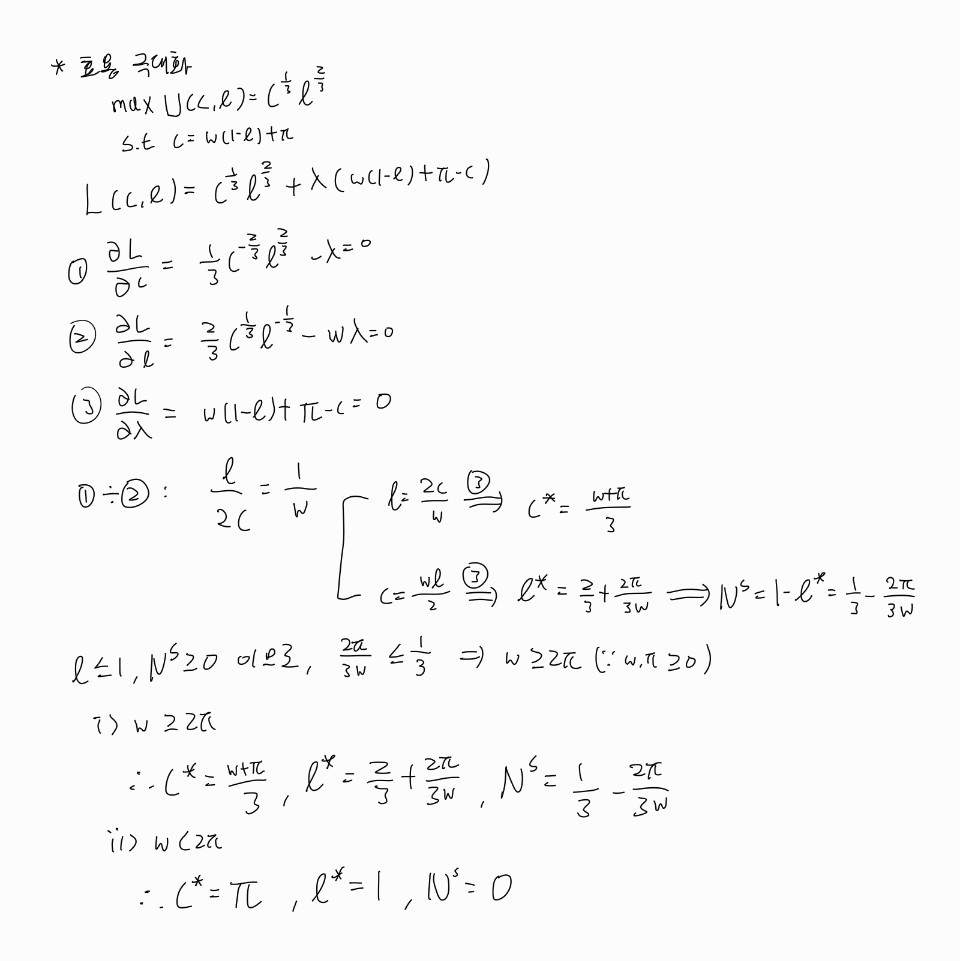 * 효용 극대화
max U(c,l) = c^{1/3} l^{2/3}
s.t c = w(1-l)+π
L(c,l) = c^{1/3} l^{2/3} + λ(w(1-l)+π-c)
① ∂L/∂c = 1/3 c^{-2/3} l^{2/3} - λ = 0
② ∂L/∂l = 2/3 c^{1/3} l^{-1/3} - wλ = 0
③ ∂L/∂λ = w(1-l)+π-c = 0
①÷② : l/2c = 1/w
l = 2c/w ⟹③ c* = (w+π)/3
c = wl/2 ⟹③ l* = 2/3 + 2π/3w ⟹ N^s = 1-l* = 1/3 - 2π/3w
l ≤ 1, N^s ≥ 0 이므로, 2π/3w ≤ 1/3 ⇒ w ≥ 2π (∵ w,π ≥ 0)
i) w ≥ 2π
∴ c* = (w+π)/3, l* = 2/3 + 2π/3w, N^s = 1/3 - 2π/3w
ii) w < 2π
∴ c* = π, l* = 1, N^s = 0